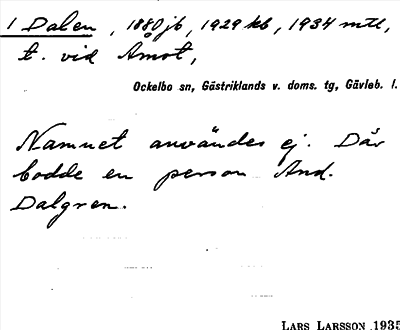 1 Dalen, 1880 jb, 1929 kb, 1934 mtl,
t. vid Åmot,
Ockelbo sn, Gästriklands v. doms. tg, Gävleb. l.
Namnet användes ej. Där
bodde en person And.
Dalgren.
LARS LARSSON 1935